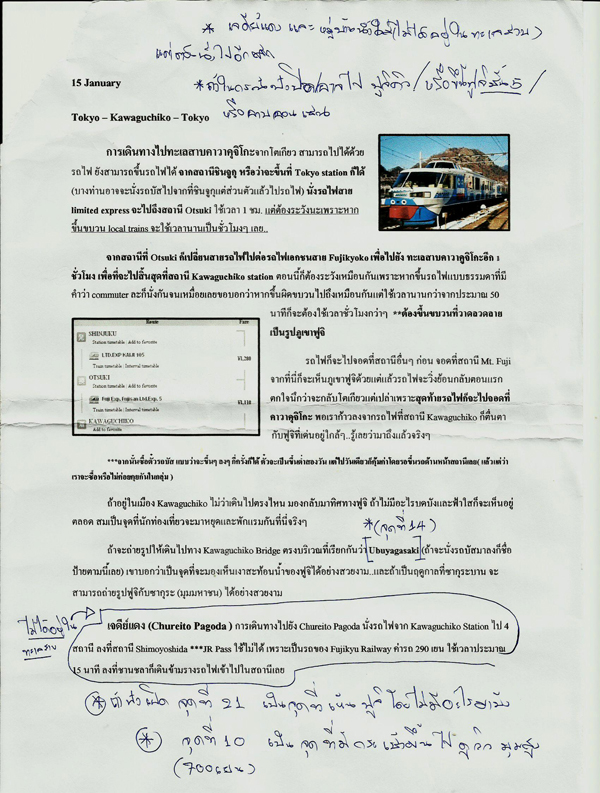 * เจดีย์แดง และ หมู่บ้านน้ำใส (ไม่ได้อยู่ในทะเลสาบ)
15 January
Tokyo – Kawaguchiko – Tokyo
การเดินทางไปทะเลสาบคาวาคุจิโกะจากโตเกียว สามารถไปได้ด้วย
รถไฟ ยังสามารถขึ้นรถไฟได้ จากสถานีชินจูกุ หรือว่าจะขึ้นที่ Tokyo station ก็ได้
(บางท่านอาจจะนั่งรถบัสไปจากที่ชินจูกุแต่ส่วนตัวแล้วไปรถไฟ) นั่งรถไฟสาย
limited express จะไปถึงสถานี Otsuki ใช้เวลา 1 ชม. แต่ต้องระวังนะเพราะหาก
ขึ้นขบวน local trains จะใช้เวลานานเป็นชั่วโมงๆ เลย..
จากสถานีที่ Otsuki ก็เปลี่ยนสายรถไฟไปต่อรถไฟเอกชนสาย Fujikyoko เพื่อไปยัง ทะเลสาบคาวาคุจิโกะอีก 1
ชั่วโมง เพื่อที่จะไปสิ้นสุดที่สถานี Kawaguchiko station ตอนนี้ก็ต้องระวังเหมือนกันเพราะหากขึ้นรถไฟแบบธรรมดาที่มี
คำว่า commuter ละก็นั่งกันจนเหมื่อยเลยขอบอกว่าหากขึ้นผิดขบวนไปถึงเหมือนกันแต่ใช้เวลานานกว่าจากประมาณ 50
นาทีก็จะต้องใช้เวลาชั่วโมงกว่าๆ **ต้องขึ้นขบวนที่วาดลวดลาย
เป็นรูปภูเขาฟูจิ
Route Fare
SHINJUKU
Station timetable | Add to favorite
LTD.EXP KAIJI 105
Train timetable | Interval timetable
¥1,280
OTSUKI
Station timetable | Add to favorite
Fuji Exp, Fujisan Ltd.Exp. 5
Train timetable | Interval timetable
¥1,110
KAWAGUCHIKO
Add to favorite
รถไฟก็จะไปจอดที่สถานีอื่นๆ ก่อน จอดที่สถานี Mt. Fuji
จากที่นี่ก็จะเห็นภูเขาฟูจิด้วยแต่แล้วรถไฟจะวิ่งย้อนกลับตอนแรก
ตกใจนึกว่าจะกลับโตเกียวแต่เปล่าเพราะสุดท้ายรถไฟก็จะไปจอดที่
คาวาคุจิโกะ พอเราก้าวลงจากรถไฟที่สถานี Kawaguchiko ก็ตื่นตา
กับฟูจิที่เด่นอยู่ใกล้ๆ..รู้เลยว่ามาถึงแล้วจริงๆ
***จากนั้นซื้อตั๋วรถบัส แบบว่าจะขึ้นๆ ลงๆ กี่ครั้งก็ได้ ตั๋วจะเป็นขั้นต่ำสองวัน แต่ไปวันเดียวก็คุ้มค่าโดยรอขึ้นรถด้านหน้าสถานีเลย( แล้วแต่ว่า
เราจะซื้อหรือไม่ค่อยคุยกันในกลุ่ม )
ถ้าอยู่ในเมือง Kawaguchiko ไม่ว่าเดินไปตรงไหน มองกลับมาทิศทางฟูจิ ถ้าไม่มีอะไรบดบังและฟ้าใสก็จะเห็นอยู่
ตลอด สมเป็นจุดที่นักท่องเที่ยวจะมาหยุดและพักแรมกันที่นี่จริงๆ
* (จุดที่ 14)
ถ้าจะถ่ายรูปให้เดินไปทาง Kawaguchiko Bridge ตรงบริเวณที่เรียกกันว่า Ubuyagasaki (ถ้าจะนั่งรถบัสมาลงก็ชื่อ
ป้ายตามนี้เลย) เขาบอกว่าเป็นจุดที่จะมองเห็นเงาสะท้อนน้ำของฟูจิได้อย่างสวยงาม..และถ้าเป็นฤดูกาลที่ซากุระบาน จะ
สามารถถ่ายรูปฟูจิกับซากุระ (มุมมหาชน) ได้อย่างสวยงาม
ไม่ได้อยู่ใน
ทะเลสาบ
เจดีย์แดง (Chureito Pagoda ) การเดินทางไปยัง Chureito Pagoda นั่งรถไฟจาก Kawaguchiko Station ไป 4
สถานี ลงที่สถานี Shimoyoshida ***JR Pass ใช้ไม่ได้ เพราะเป็นรถของ Fujikyu Railway ค่ารถ 290 เยน ใช้เวลาประมาณ
15 นาที ลงที่ชานชลาก็เดินข้ามรางรถไฟเข้าไปในสถานีเลย
* ถ้าฟ้าเปิด จุดที่ 21 เป็นจุดที่เห็นฟูจิ โดยไม่มีอะไรมาบัง
* จุดที่ 10 เป็นจุดที่มีกระเช้าขึ้นไปดูวิวมุมสูง
(700 เยน)